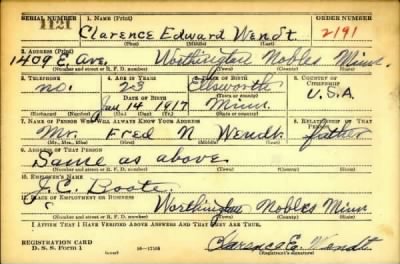 SERIAL NUMBER 1. NAME (Print) ORDER NUMBER
1121 Clarence Edward Wendt 2191
(First) (Middle) (Last)
2. ADDRESS (Print)
1409 E. Ave, Worthington Nobles Minn.
(Number and street or R. F. D. number) (Town) (County) (State)
3. TELEPHONE 4. AGE IN YEARS 5. PLACE OF BIRTH 6. COUNTRY OF CITIZENSHIP
no. 23 Ellsworth
DATE OF BIRTH (Town or county) U.S.A
Jan 14 1917 Minn.
(Mo.) (Day) (Yr.) (State or country)
7. NAME OF PERSON WHO WILL ALWAYS KNOW YOUR ADDRESS 8. RELATIONSHIP OF THAT PERSON
Mr. Fred N Wendt father
(Mr., Mrs., Miss) (First) (Middle) (Last)
9. ADDRESS OF THAT PERSON
Same as above
(Number and street or R. F. D. number) (Town) (County) (State)
10. EMPLOYER'S NAME
J.C. Boote.
11. PLACE OF EMPLOYMENT OR BUSINESS
Worthington Nobles Minn
(Number and street or R. F. D. number) (Town) (County) (State)
I AFFIRM THAT I HAVE VERIFIED ABOVE ANSWERS AND THAT THEY ARE TRUE.
REGISTRATION CARD
D. S. S. Form 1 (over) Clarence E. Wendt
(Registrant's signature)